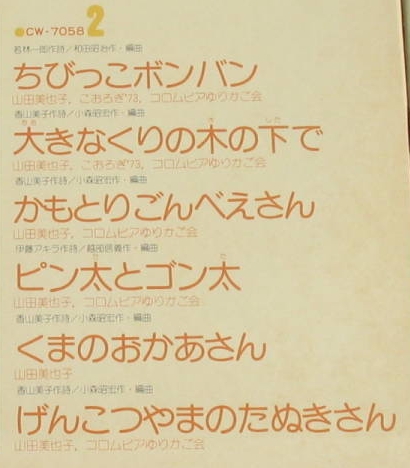 ●CW-7058 2
若林一郎作詩／和田昭治作・編曲
ちびっこボンバン
山田美也子，こおろぎ'73，コロムビアゆりかご会
香山美子作詩／小森昭宏作・編曲
大きなくりの木の下で
山田美也子，こおろぎ'73，コロムビアゆりかご会
香山美子作詩／小森昭宏作・編曲
かもとりごんべえさん
山田美也子，コロムビアゆりかご会
伊藤アキラ作詩／越部信義作・編曲
ピン太とゴン太
山田美也子，コロムビアゆりかご会
香山美子作詩／小森昭宏作・編曲
くまのおかあさん
山田美也子
香山美子作詩／小森昭宏作・編曲
げんこつやまのたぬきさん
山田美也子，コロムビアゆりかご会